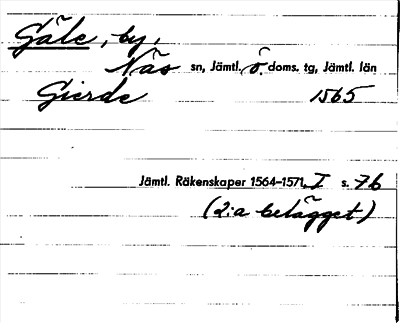 Gäle, by,
Näs sn, Jämtl. ö. doms. tg, Jämtl. län
Gierde 1565
Jämtl. Räkenskaper 1564–1571, I s. 76
(2:a belägget)